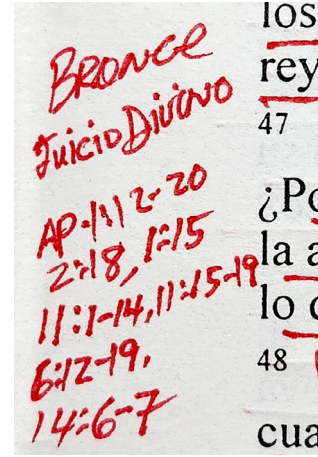 Bronce
Juicio Divino
AP. 1:12-20
2:18, 1:15
11:1-14, 11:15-19
6:12-19,
14:6-7
los
rey
47
¿Po
la a
lo
48
cua